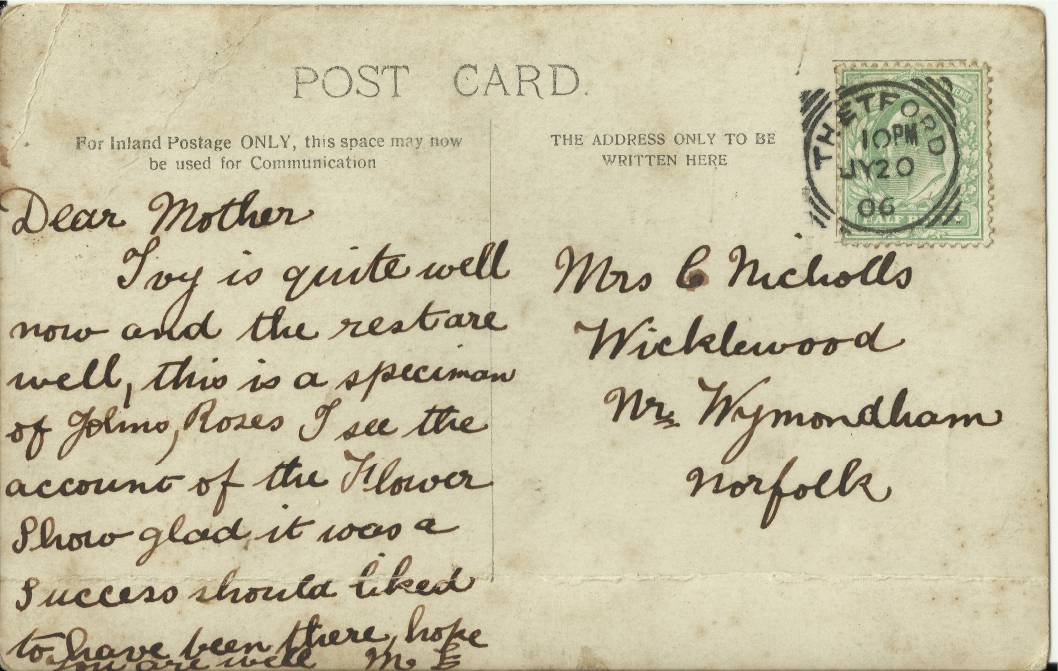 POST CARD.
For Inland Postage ONLY, this space may now
be used for Communication
THE ADDRESS ONLY TO BE
WRITTEN HERE
THETFORD
10PM
JY20
06
HALF PENNY
Dear Mother
Ivy is quite well
now and the rest are
well, this is a speciman
of Johns, Roses I see the
account of the Flower
Show glad it was a
Success should liked
to have been there, hope
you are well M E
Mrs C Nicholls
Wicklewood
Nr Wymondham
Norfolk